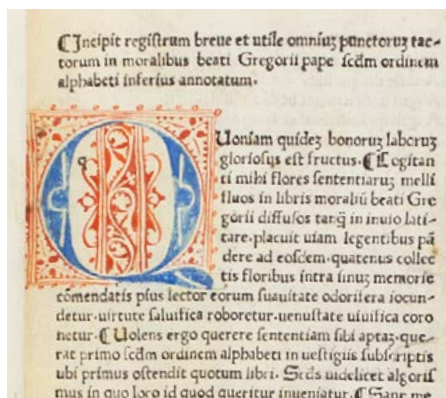 ¶Incipit regiſtrum breue et utile omniuꝫ punctoruꝫ tac⸗
torum in moralibus beati Gregorii pape ſcd̄m ordinem
alphabeti inferius annotatum.
QUoniam quideꝫ bonoruꝫ laboruꝫ
glorioſus eſt fructus. ¶Cogitan
ti mihi flores ſententiaruꝫ melli
fluos in libris moraliū beati Gre
gorii diffuſos tanq̄ in inuio lati⸗
tare. placuit uiam legentibus pā
dere ad eoſdem. quatenus collec
tis floribus intra ſinuꝫ memorie
cōmendatis pius lector eorum ſuauitate odorifera iocun⸗
detur. uirtute ſaluifica roboretur. uenuſtate uiuifica coro
netur. ¶Uolens ergo querere ſententiam ſibi aptaꝫ. que⸗
rat primo ſcd̄m ordinem alphabeti in ueſtigiis ſubſcriptis
ubi primus oſtendit quotum libri. Scd̄s uidelicet algoriſ
mus in quo loco id quod queritur inueniatur. ¶Sane me